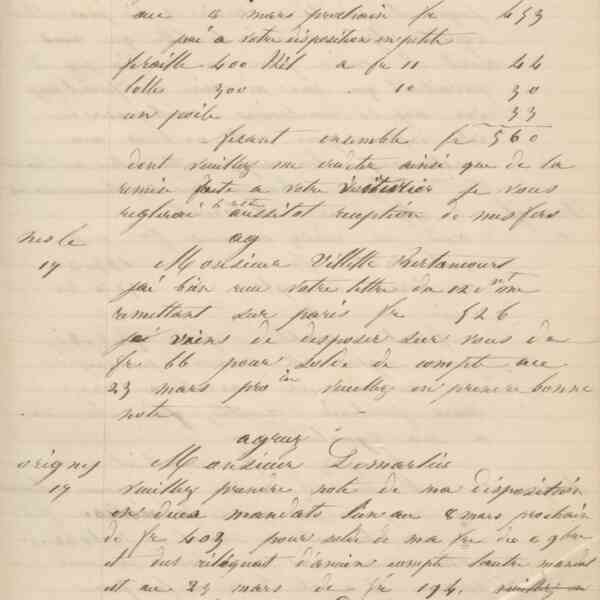 au 8 mars prochain fr 453
j'ai a votre disposition en petite
feraille 400 Kil a fr 11 44
tolles 300 . 10 30
un poile 33
fesant ensemble fr 560
dont veuillez me crediter ainsi que de la
remise faite a votre je vous
reglerai le aussitot reception de mes fers
ag
nesle
17 Monsieur Villette Bertancourt
j'ai bien reçu votre lettre du 12 me
remettant sur paris fr 526
je viens de disposer sur vous de
fr 66 pour solde de compte au
23 mars pro in veuillez en prendre bonne
note
agreez
origny Monsieur Demartin
17 veuillez prendre note de ma disposition
en deux mandats l'un au 8 mars prochain
de fr 403 pour solde de ma fre du 9 9bre
et du reliquat d'ancien compte l'autre mandat
est au 23 mars de fr 194. veuillez